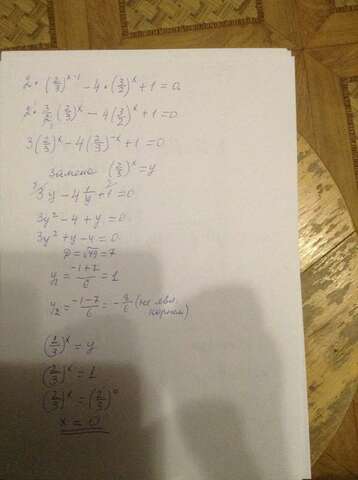 2 · (2/3)^(x-1) - 4 · (3/2)^x + 1 = 0
2 · 3/2 (2/3)^x - 4(3/2)^x + 1 = 0
3(2/3)^x - 4(2/3)^(-x) + 1 = 0
замена (2/3)^x = y
3y - 4 1/y + 1 = 0
3y² - 4 + y = 0
3y² + y - 4 = 0
D = √49 = 7
y₁ = (-1+7)/6 = 1
y₂ = (-1-7)/6 = -8/6 (не явл. корнем)
(2/3)^x = y
(2/3)^x = 1
(2/3)^x = (2/3)^0
x = 0